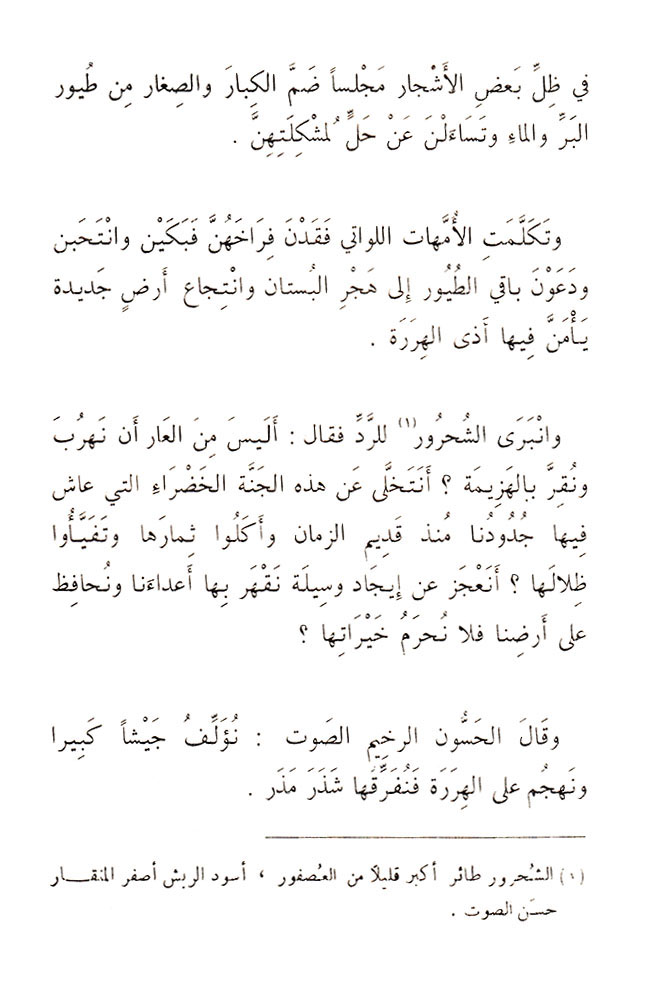 في ظِلِّ بَعضِ الأَشْجار مَجْلساً ضَمَّ الكِبارَ والصِغار مِن طُيور
البَرِّ والماءِ وتَسَاءَلْنَ عَنْ حَلٍّ لمُشْكِلَتِهِنَّ .
وتَكَلَّمَتِ الأُمَّهات اللواتي فَقَدْنَ فِرَاخَهُنَّ فَبَكَيْن وانْتَحَبن
ودَعَوْنَ باقي الطُيُور إلى هَجْرِ البُستان وانْتِجاع أَرضٍ جَديدة
يَأْمَنَّ فِيها أَذى الهِرَرَة .
وانْبَرَى الشُحرُور(١) للرَّدِّ فقال : أَلَيسَ مِنَ العَار أَن نَهرُبَ
ونُقِرَّ بالهَزِيمَة ؟ أَنَتَخَلَّى عَن هذه الجَنَّة الخَضْرَاءِ التي عاش
فِيها جُدُودُنا مُنذ قَدِيم الزمان وأَكَلُوا ثِمارَها وتَفَيَّأُوا
ظِلالَها ؟ أَنَعْجَز عن إيجَاد وسِيلَة نَقْهَر بِها أَعداءَنا ونُحافِظ
على أَرضِنا فلا نُحرَمُ خَيْرَاتِها ؟
وقَالَ الحَسُّون الرخيم الصَوت : نُؤَلِّفُ جَيْشاً كَبِيرا
ونَهجُم على الهِرَرَة فَنُفَرِّقُها شَذَرَ مَذَر .
(١) الشُحرور طائر أكبر قليلاً من العُصفور ، أسود الريش أصفر المنقــار
حسَن الصوت .